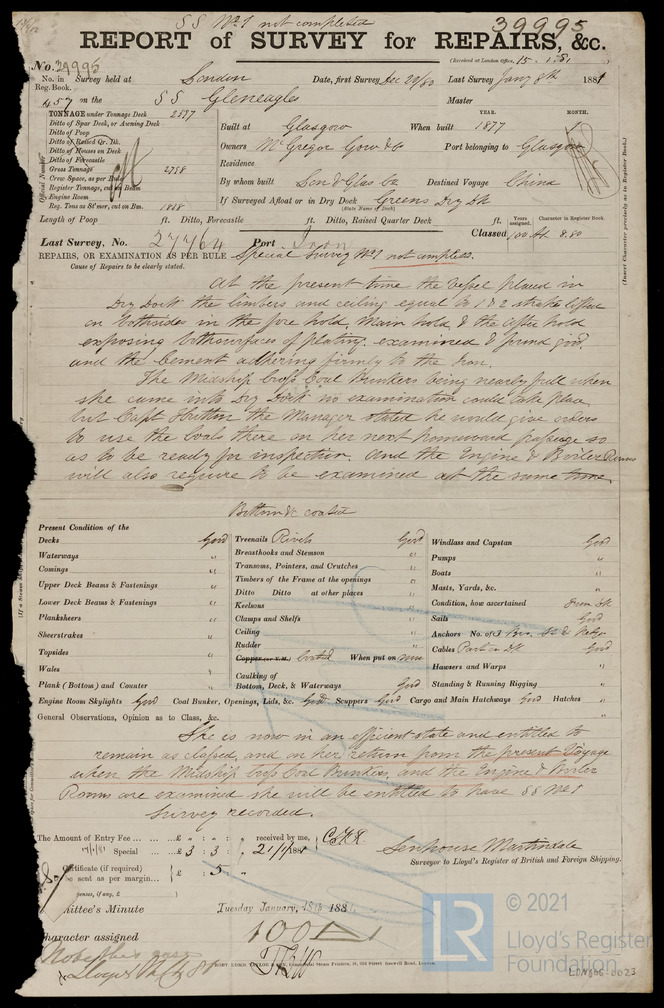 SS No 1 not completed
39995
REPORT of SURVEY for REPAIRS, &c.
(Received at London Office, 15 . 1 . 81 )
No. 39995
No. in Reg. Book. Survey held at London Date, first Survey Dec 20/80 Last Survey Jany 8th 1881
457 on the SS Gleneagles Master
TONNAGE under Tonnage Deck 2587
Ditto of Spar Deck, or Awning Deck
Ditto of Poop
Ditto of Raised Qr. Dk.
Ditto of Houses on Deck
Ditto of Forecastle
Gross Tonnage 2798
Crew Space, as per Rule
Register Tonnage, cut on Beam
Engine Room
Reg. Tons as St'mer, cut on Bm. 1808
Official Number
YEAR. MONTH.
Built at Glasgow When built 1877
Owners McGregor Gow & Co Port belonging to Glasgow
Residence
By whom built Lon & Glas Co Destined Voyage China
If Surveyed Afloat or in Dry Dock Greens Dry Dk
(State Name of Dock)
Length of Poop ft. Ditto, Forecastle ft. Ditto, Raised Quarter Deck ft.
Years assigned. Character in Register Book.
Classed 100 A1 8.80
(Insert Character precisely as in Register Book.)
Last Survey, No. 27764 Port Iron
REPAIRS, OR EXAMINATION AS PER RULE Special Survey No 1 not complete.
Cause of Repairs to be clearly stated.
At the present time the Vessel placed in
Dry Dock the limbers and ceiling equal to 1 & 2 strakes lifted
on bothsides in the fore hold, Main hold, & the after hold
exposing bothsurfaces of plating, examined & found good,
and the Cement adhering firmly to the Iron.
The Midship Cross Coal Bunkers being nearly full when
she came into Dry Dock no examination could take place
but Capt Hutton the Manager stated he would give orders
to use the Coals there on her next homeward passage so
as to be ready for inspection. And the Engine & Boiler Rooms
will also require to be examined at the same time.
Bottom &c coated
Present Condition of the
Decks Good
Waterways "
Comings "
Upper Deck Beams & Fastenings "
Lower Deck Beams & Fastenings "
Planksheers "
Sheerstrakes "
Topsides "
Wales "
Plank (Bottom) and Counter "
Treenails Rivets Good
Breasthooks and Stemson "
Transoms, Pointers, and Crutches "
Timbers of the Frame at the openings "
Ditto Ditto at other places "
Keelsons "
Clamps and Shelfs "
Ceiling "
Rudder "
Copper (or Y.M.) Coated When put on now
Caulking of
Bottom, Deck, & Waterways Good
Windlass and Capstan Good
Pumps "
Boats "
Masts, Yards, &c. "
Condition, how ascertained From Dk
Sails Good
Anchors No. of 3 Bow,
Cables Part on Dk Good
Hawsers and Warps "
Standing & Running Rigging "
Engine Room Skylights Good Coal Bunker, Openings, Lids, &c. Good Scuppers Good Cargo and Main Hatchways Good Hatches "
General Observations, Opinion as to Class, &c.
She is now in an efficient state and entitled to
remain as classed, and on her return from the present Voyage
when the Midship Cross Coal Bunkers, and the Engine & Boiler
Rooms are examined she will be entitled to have SS No 1
Survey recorded.
The Amount of Entry Fee ... £ " : " : " received by me,
Special ... £ 3 : 3 : " 21/1/1881
Certificate (if required) £ : 5 :
be sent as per margin...
penses, if any, £ )
Senhouse Martindale
Surveyor to Lloyd's Register of British and Foreign Shipping.
ittee's Minute Tuesday January, 18th 1881
haracter assigned 100A1
© 2021
LR Lloyd's Register
Foundation
LON606-0023